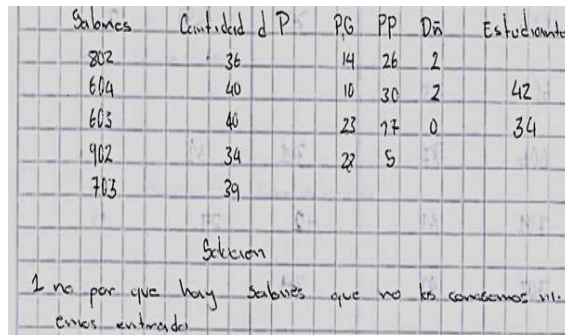 Salones Cantidad d P PG PP Dñ Estudiante
802 36 14 26 2
604 40 10 30 2 42
603 40 23 17 0 34
902 34 22 5
703 39
Solución
1 no por que hay Salones que no los conocemos ni.
emos entrado